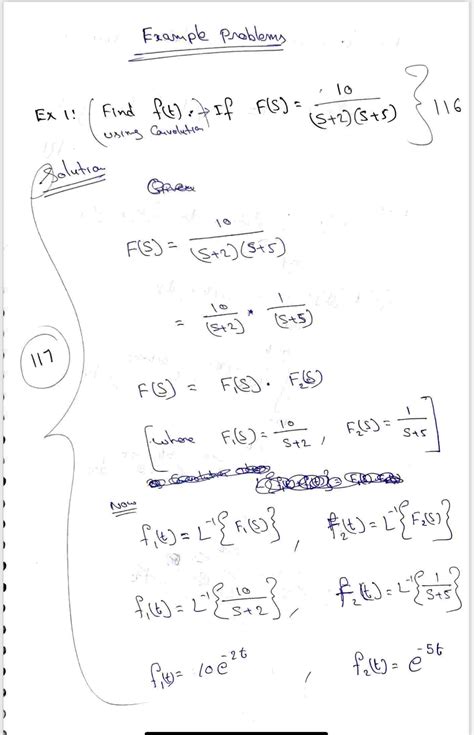 Example Problems
Ex 1: (Find f(t) :→ If F(S) = 10/((S+2)(S+5)) } 116
using Convolution)
Solution
Given
F(S) = 10/((S+2)(S+5))
= 10/(S+2) * 1/(S+5)
117
F(S) = F₁(S) . F₂(S)
[where F₁(S) = 10/(S+2) , F₂(S) = 1/(S+5)]
Now
f₁(t) = L⁻¹{F₁(S)} , f₂(t) = L⁻¹{F₂(S)}
f₁(t) = L⁻¹{10/(S+2)} , f₂(t) = L⁻¹{1/(S+5)}
f₁(t) = 10e^(-2t) , f₂(t) = e^(-5t)